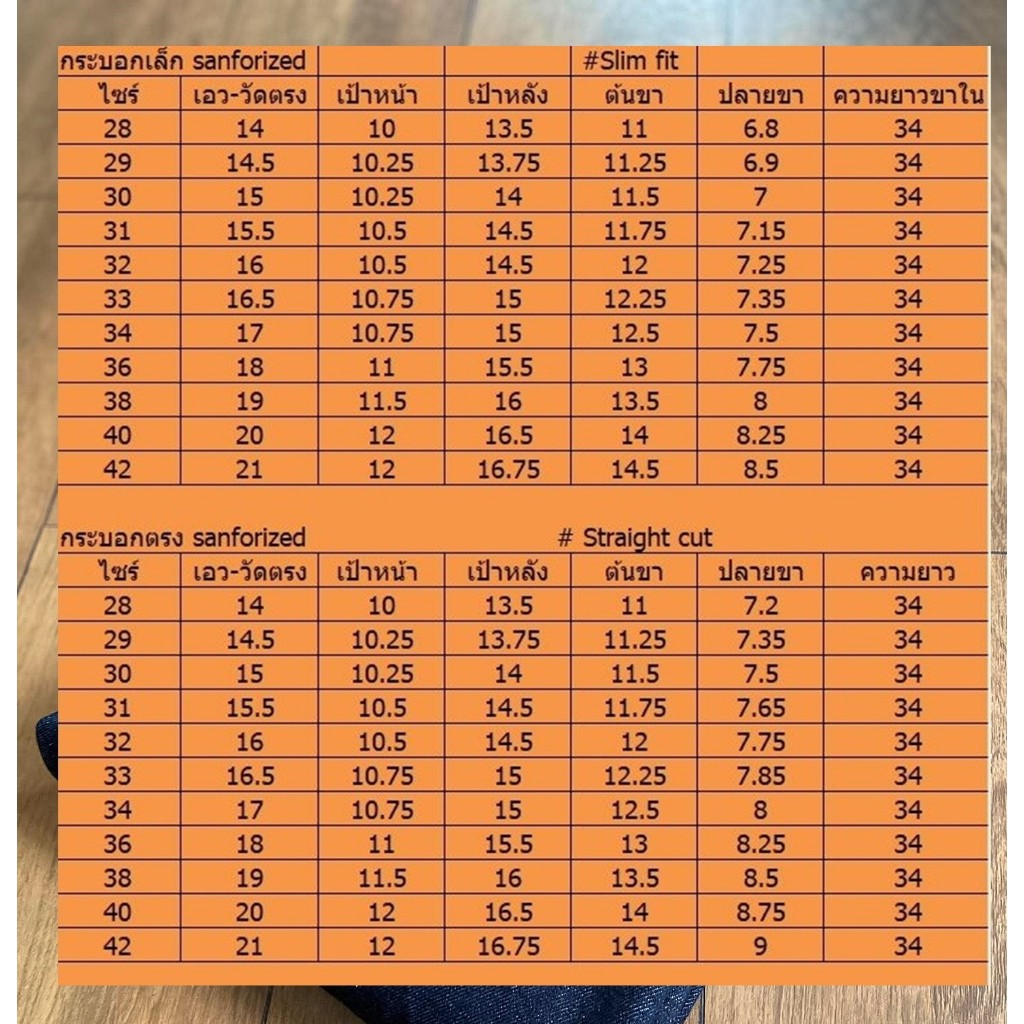 กระบอกเล็ก sanforized #Slim fit
ไซร์ เอว-วัดตรง เป้าหน้า เป้าหลัง ต้นขา ปลายขา ความยาวขาใน
28 14 10 13.5 11 6.8 34
29 14.5 10.25 13.75 11.25 6.9 34
30 15 10.25 14 11.5 7 34
31 15.5 10.5 14.5 11.75 7.15 34
32 16 10.5 14.5 12 7.25 34
33 16.5 10.75 15 12.25 7.35 34
34 17 10.75 15 12.5 7.5 34
36 18 11 15.5 13 7.75 34
38 19 11.5 16 13.5 8 34
40 20 12 16.5 14 8.25 34
42 21 12 16.75 14.5 8.5 34
กระบอกตรง sanforized # Straight cut
ไซร์ เอว-วัดตรง เป้าหน้า เป้าหลัง ต้นขา ปลายขา ความยาว
28 14 10 13.5 11 7.2 34
29 14.5 10.25 13.75 11.25 7.35 34
30 15 10.25 14 11.5 7.5 34
31 15.5 10.5 14.5 11.75 7.65 34
32 16 10.5 14.5 12 7.75 34
33 16.5 10.75 15 12.25 7.85 34
34 17 10.75 15 12.5 8 34
36 18 11 15.5 13 8.25 34
38 19 11.5 16 13.5 8.5 34
40 20 12 16.5 14 8.75 34
42 21 12 16.75 14.5 9 34